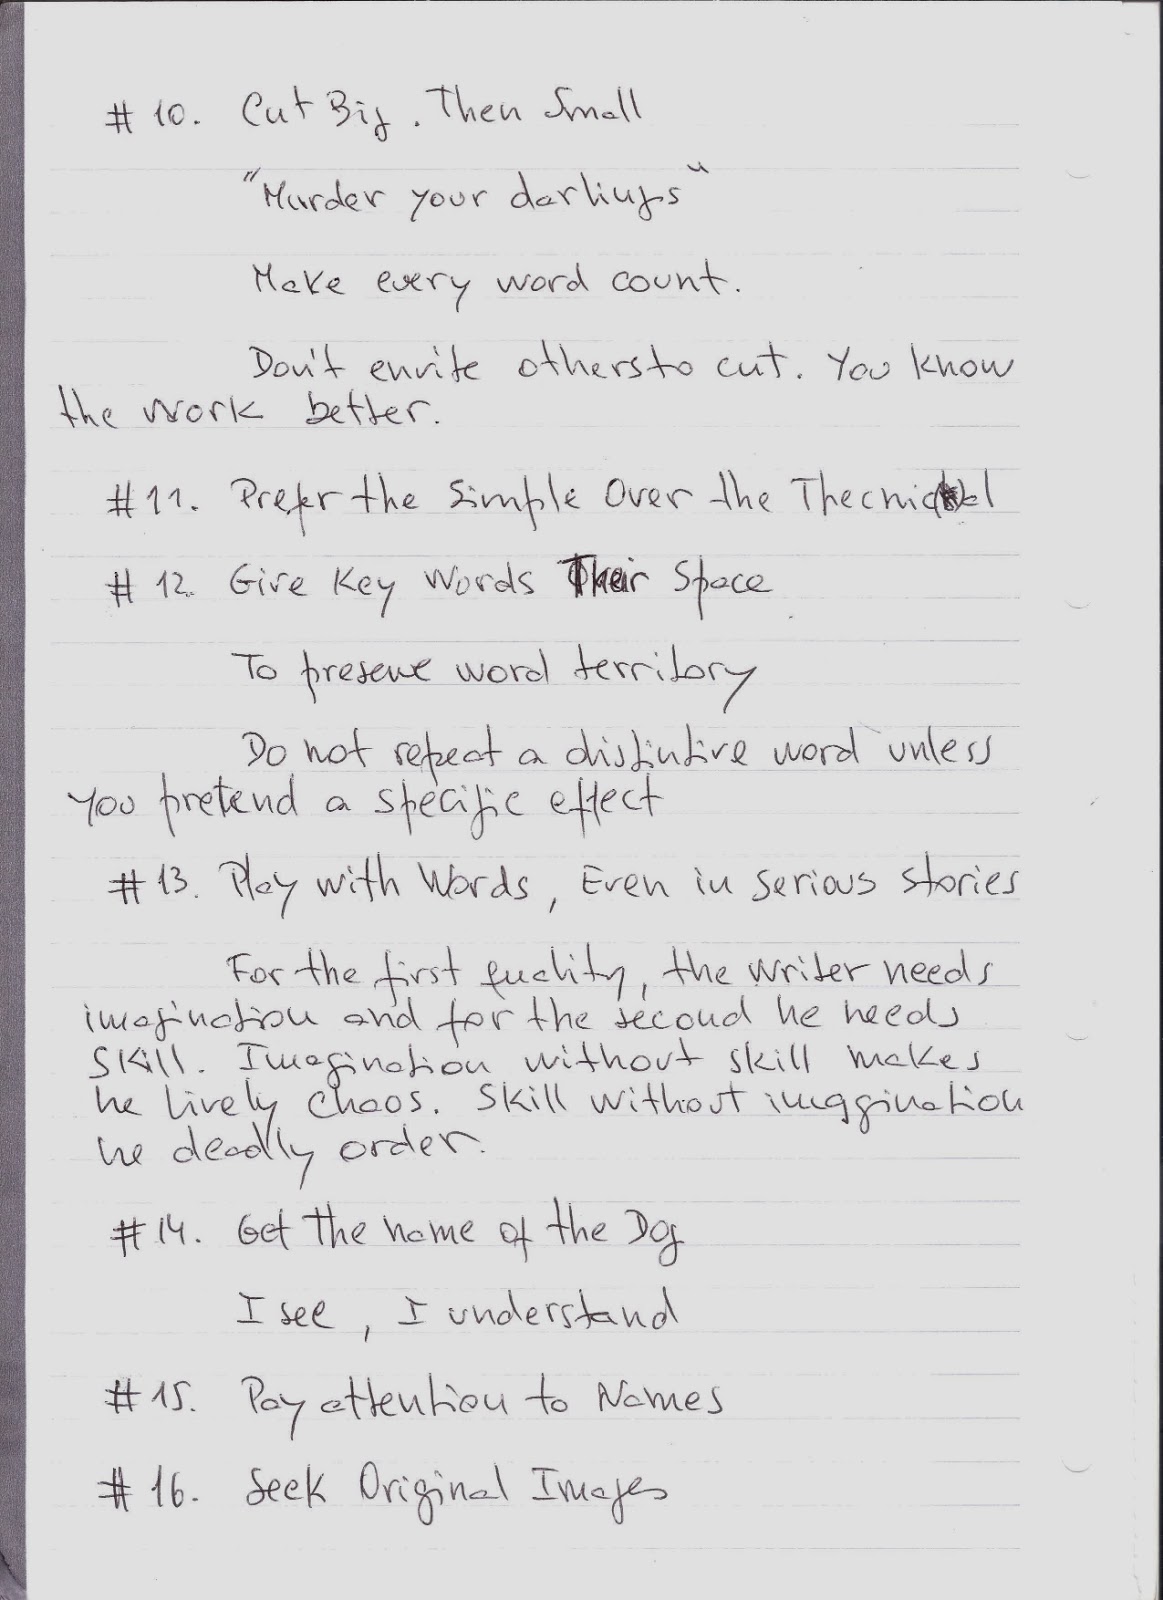 # 10. Cut Big. Then Small
"Murder your darlings"
Make every word count.
Don't envite others to cut. You know
the work better.
# 11. Prefer the Simple Over the Thecnical
# 12. Give Key Words Their Space
To preserve word territory
Do not repeat a distintive word unless
you pretend a specific effect
# 13. Play with Words, Even in serious stories
For the first quality, the writer needs
imagination and for the second he needs
skill. Imagination without skill makes
he lively chaos. Skill without imaggination
he deadly order.
# 14. Get the name of the Dog
I see, I understand
# 15. Pay attention to Names
# 16. Seek Original Images